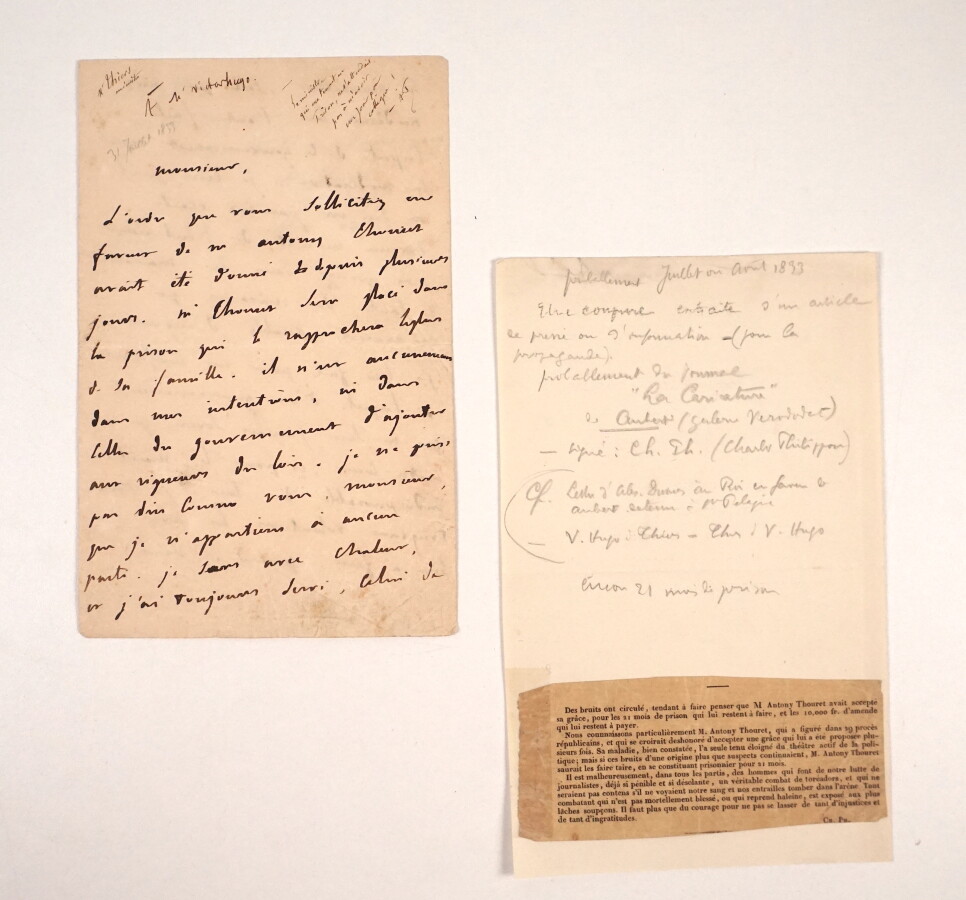 Mr Thiers
ministre
À Mr Victor hugo.
31 1833
monsieur,
L'ordre que vous sollicitez en
faveur de mr antony Thouret
avait été donné depuis plusieurs
jours. mr Thouret sera placé dans
la prison qui le rapprochera le plus
de sa famille. il n'est aucunement
dans mes intentions, ni dans
celles du gouvernement d'ajouter
aux rigueurs des lois. je ne puis
pas dire comme vous, monsieur,
que je n'appartiens à aucun
parti. je sers avec chaleur,
et j'ai toujours servi, celui de
probablement Juillet ou Avril 1833
Une coupure extraite d'un article
de presse ou d'information – (pour la
propagande).
probablement du journal
"La Caricature"
de Aubert (galerie Verododat)
– signé : Ch. Ph. (Charles Philippon)
Cf. Lettre d'Alex. Dumas au Roi en faveur de
aubert détenu à Ste Pelagie
– V. Hugo à Thiers – Thiers à V. Hugo
encore 21 mois de prison
Des bruits ont circulé, tendant à faire penser que M Antony Thouret avait accepté
sa grâce, pour les 21 mois de prison qui lui restent à faire, et les 10,000 fr. d'amende
qui lui restent à payer.
Nous connaissons particulièrement M. Antony Thouret, qui a figuré dans 29 procès
républicains, et qui se croirait deshonoré d'accepter une grâce qui lui a été proposée plu-
sieurs fois. Sa maladie, bien constatée, l'a seule tenu éloigné du théâtre actif de la poli-
tique; mais si ces bruits d'une origine plus que suspecte continuaient, M. Antony Thouret
saurait les faire taire, en se constituant prisonnier pour 21 mois.
Il est malheureusement, dans tous les partis, des hommes qui font de notre lutte de
journalistes, déjà si pénible et si désolante, un véritable combat de toréadors, et qui ne
seraient pas contens s'il ne voyaient notre sang et nos entrailles tomber dans l'arène. Tout
combattant qui n'est pas mortellement blessé, ou qui reprend haleine, est exposé aux plus
lâches soupçons. Il faut plus que du courage pour ne pas se lasser de tant d'injustices et
de tant d'ingratitudes.
Ch. Ph.